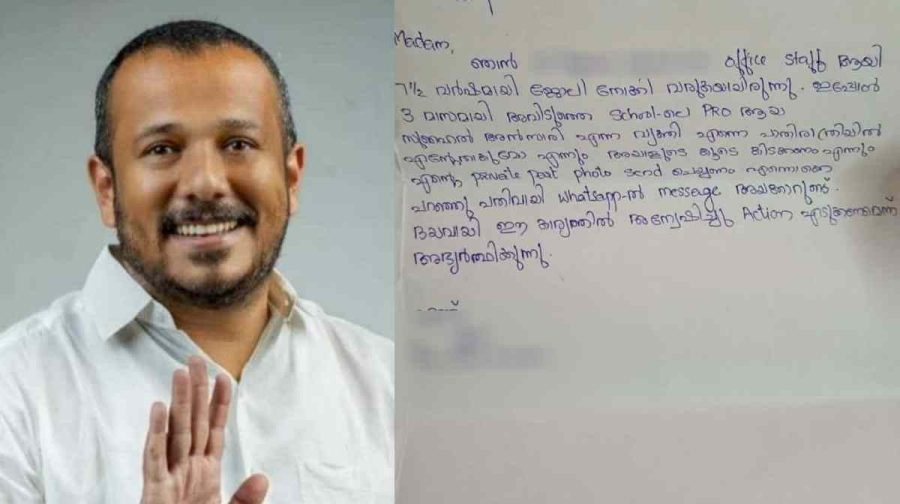 Madam,
ഞാൻ office staff ആയി
7½ വർഷമായി ജോലി നോക്കി വരുകയായിരുന്നു. ഇപ്പോൾ
3 മാസമായി അവിടുത്തെ School-ലെ PRO ആയ
അൻസാരി എന്ന വ്യക്തി എന്നെ പാതിരാത്രിയിൽ
എന്നും അയാളുടെ കൂടെ കിടക്കണം എന്നും
എന്റെ private part photo send ചെയ്യണം എന്നൊക്കെ
പറഞ്ഞു പതിവായി whatsapp-ൽ message അയക്കാറുണ്ട്.
ദയവായി ഈ കാര്യത്തിൽ അന്വേഷിച്ചു Action എടുക്കണമെന്ന്
അഭ്യർത്ഥിക്കുന്നു.